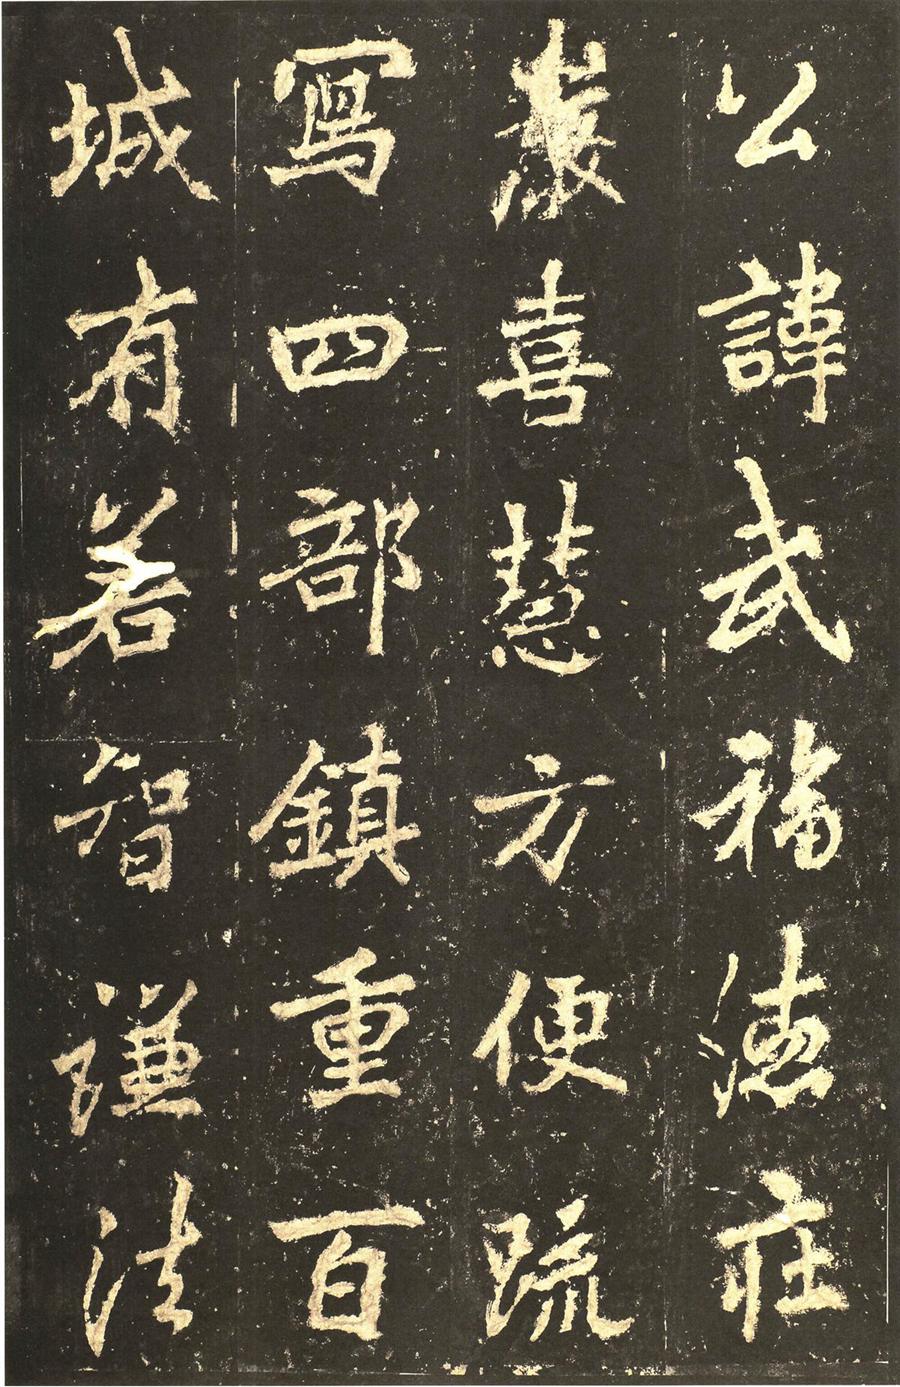 公諱武福德庄
嚴喜慧方便疏
寫四部鎮重百
城有若智謙法